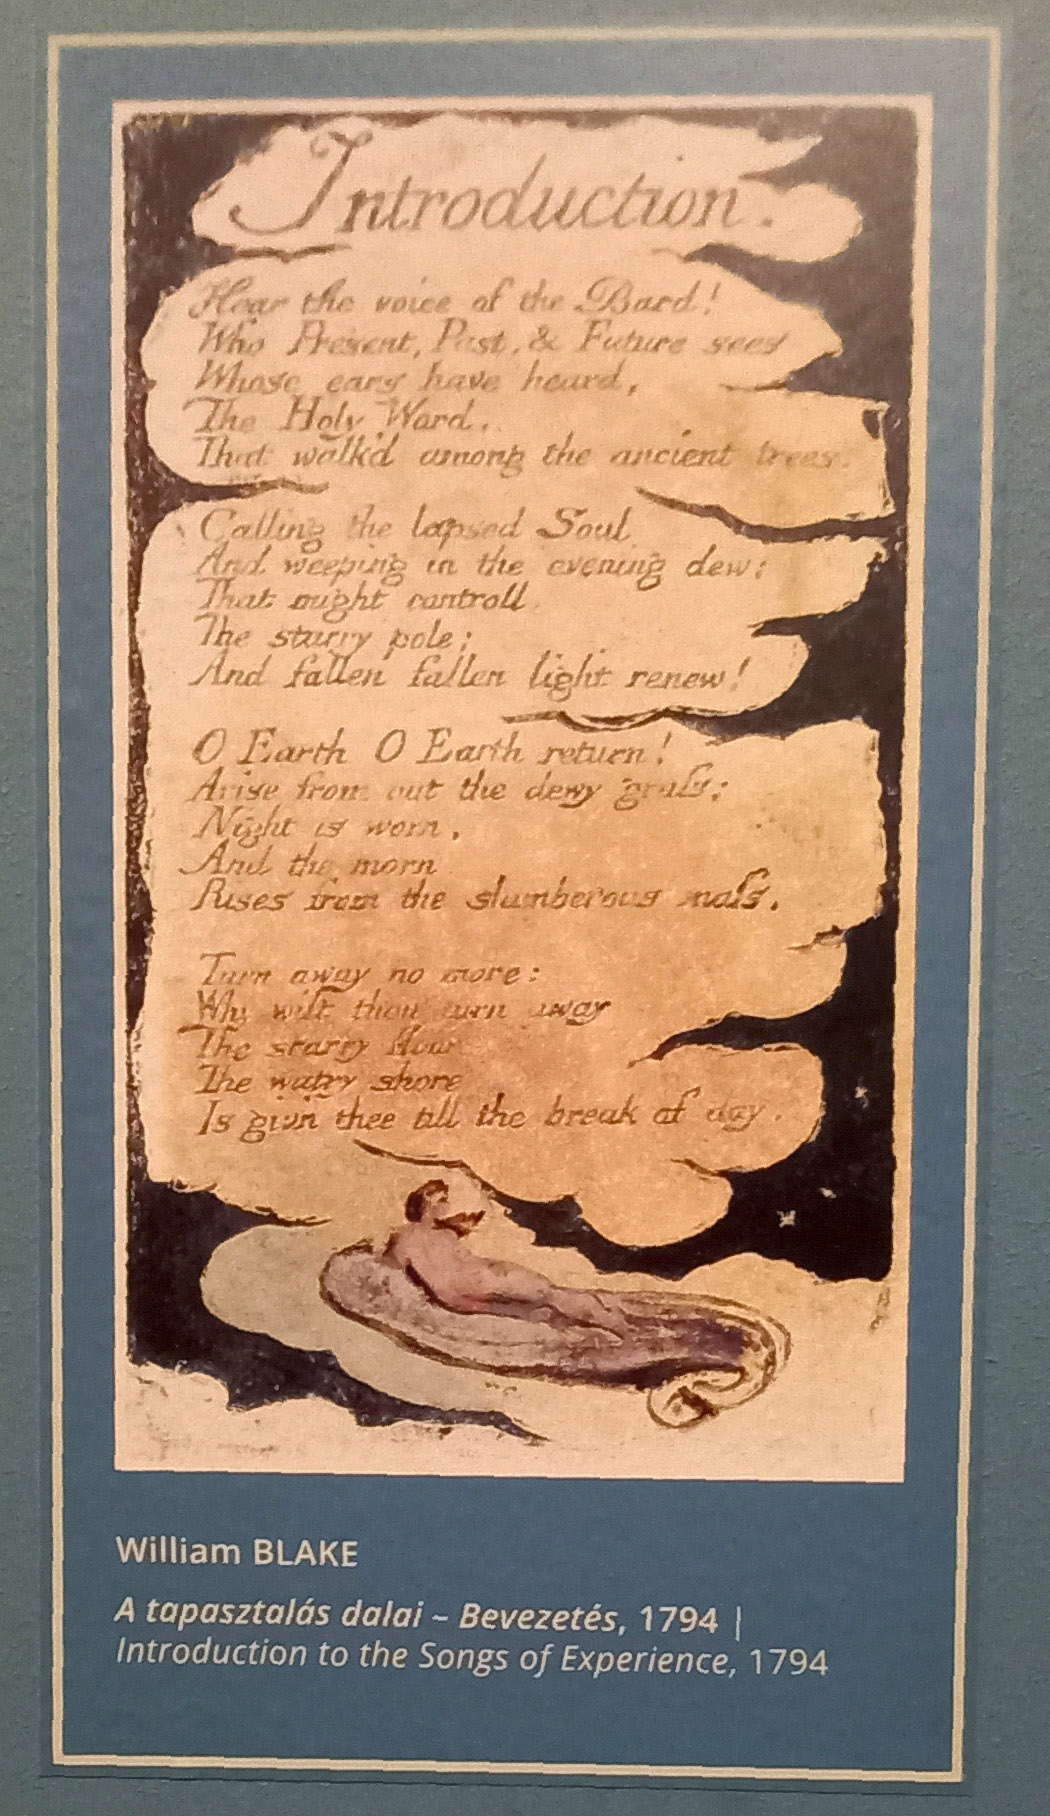 Introduction.
Hear the voice of the Bard!
Who Present, Past, & Future sees
Whose ears have heard,
The Holy Word,
That walk'd among the ancient trees.
Calling the lapsed Soul
And weeping in the evening dew:
That might controll
The starry pole;
And fallen fallen light renew!
O Earth O Earth return!
Arise from out the dewy grass;
Night is worn,
And the morn
Rises from the slumberous mass.
Turn away no more:
Why wilt thou turn away
The starry floor
The watry shore
Is giv'n thee till the break of day.
William BLAKE
A tapasztalás dalai – Bevezetés, 1794 |
Introduction to the Songs of Experience, 1794